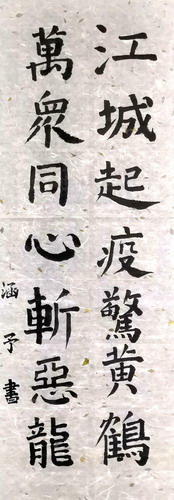 江城起疫驚黄鶴
萬衆同心斬惡龍
涵予書